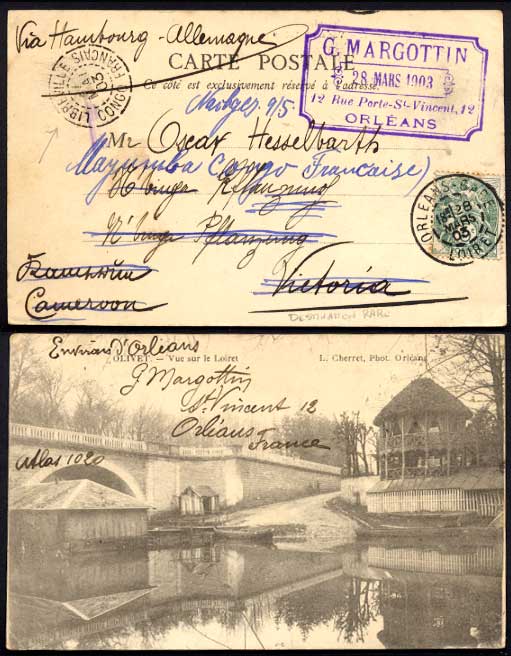 Via Hambourg - Allemagne
CARTE POSTALE
Ce côté est exclusivement réservé à l'adresse.
G. MARGOTTIN
28 MARS 1903
12 Rue Porte-St-Vincent, 12
ORLÉANS
LIBREVILLE
CONGO FRANÇAIS
MAI
03
9/5
Mr Oscar Hesselbarth
Mayumba Congo Francaise)
N'binga Pflanzung
Victoria
Kamerun
Cameroon
ORLEANS-GARE
28
MARS
03
LOIRET
DESTINATION RARE
Environs d'Orléans
OLIVET. — Vue sur le Loiret
L. Cherret, Phot. Orléans
G Margottin
St Vincent 12
Orléans
France
Atlas 1020